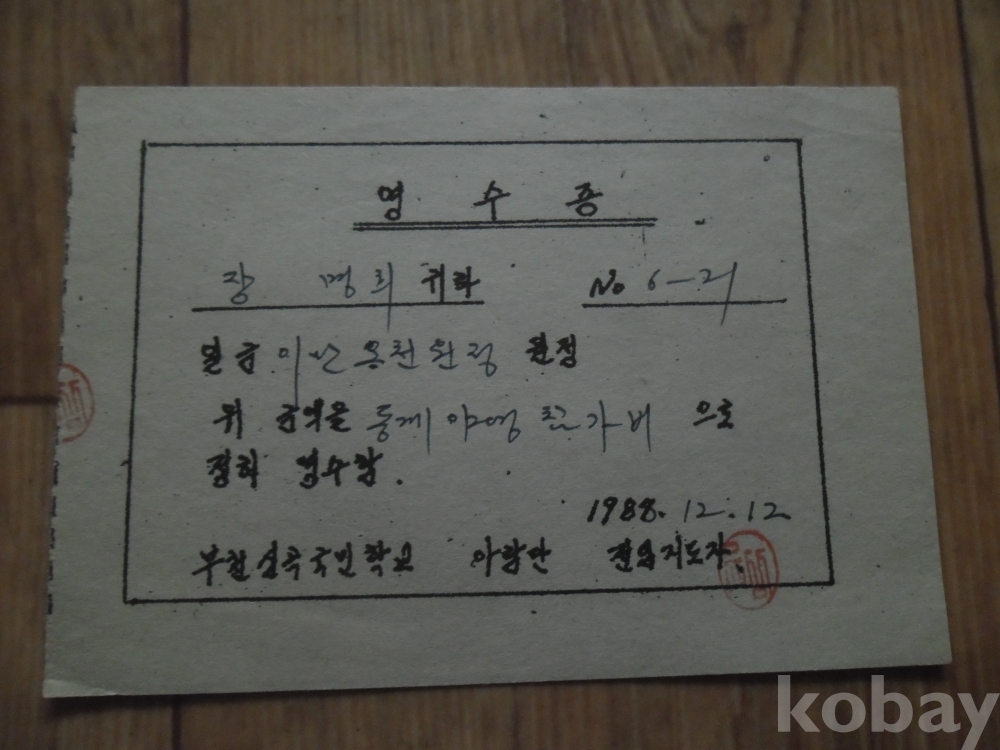 영 수 증
장 명희 귀하 No 6-21
일금 이만오천원정 원정
위 금액을 동계 야영 참가비 으로
정히 영수함.
1988. 12. 12
부천심곡국민학교 아람단 전임지도자.
kobay